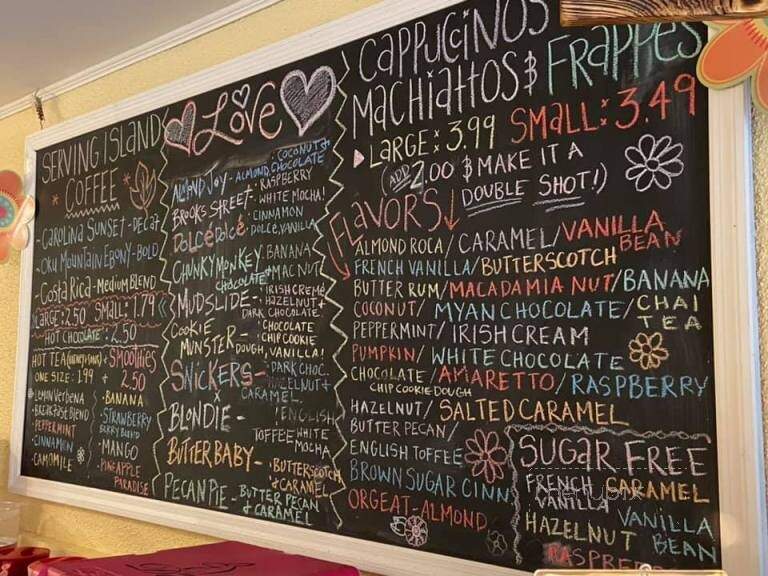 SERVING ISLAND
COFFEE
- CAROLINA SUNSET - DECAF
- OKU MOUNTAIN EBONY - BOLD
- COSTA RICA - MEDIUM BLEND
LARGE: 2.50 SMALL: 1.79
HOT CHOCOLATE: 2.50
HOT TEA
ONE SIZE: 1.99
· LEMON VERBENA
· BREAKFAST BLEND
· PEPPERMINT
· CINNAMON
· CAMOMILE
+ SMOOTHIES
2.50
· BANANA
· STRAWBERRY
BERRY BLEND
· MANGO
· PINEAPPLE
PARADISE
LOVE
ALMOND JOY - ALMOND, COCONUT +
CHOCOLATE
BROOKS STREET - RASPBERRY
WHITE MOCHA!
DOLCÉ DOLCÉ - CINNAMON
DOLCE, VANILLA
CHUNKY MONKEY - BANANA
CHOCOLATE + MAC NUT
MUDSLIDE - IRISH CREME
HAZELNUT +
DARK CHOCOLATE
COOKIE
MUNSTER - CHOCOLATE
CHIP COOKIE
DOUGH, VANILLA!
SNICKERS - DARK CHOC.
HAZELNUT +
CARAMEL
BLONDIE - ENGLISH
TOFFEE WHITE
MOCHA
BUTTER BABY - BUTTERSCOTCH
& CARAMEL
PECAN PIE - BUTTER PECAN
& CARAMEL
CAPPUCCINOS
MACHIATTOS & FRAPPES
LARGE: 3.99 SMALL: 3.49
(ADD 2.00 $ MAKE IT A
DOUBLE SHOT!)
FLAVORS
ALMOND ROCA / CARAMEL / VANILLA
BEAN
FRENCH VANILLA / BUTTERSCOTCH
BUTTER RUM / MACADAMIA NUT / BANANA
COCONUT / MYAN CHOCOLATE / CHAI
TEA
PEPPERMINT / IRISH CREAM
PUMPKIN / WHITE CHOCOLATE
CHOCOLATE / AMARETTO / RASPBERRY
CHIP COOKIE DOUGH
HAZELNUT / SALTED CARAMEL
BUTTER PECAN /
ENGLISH TOFFEE
BROWN SUGAR CINN
ORGEAT - ALMOND
SUGAR FREE
FRENCH CARAMEL
VANILLA
HAZELNUT VANILLA
BEAN
RASPBERRY